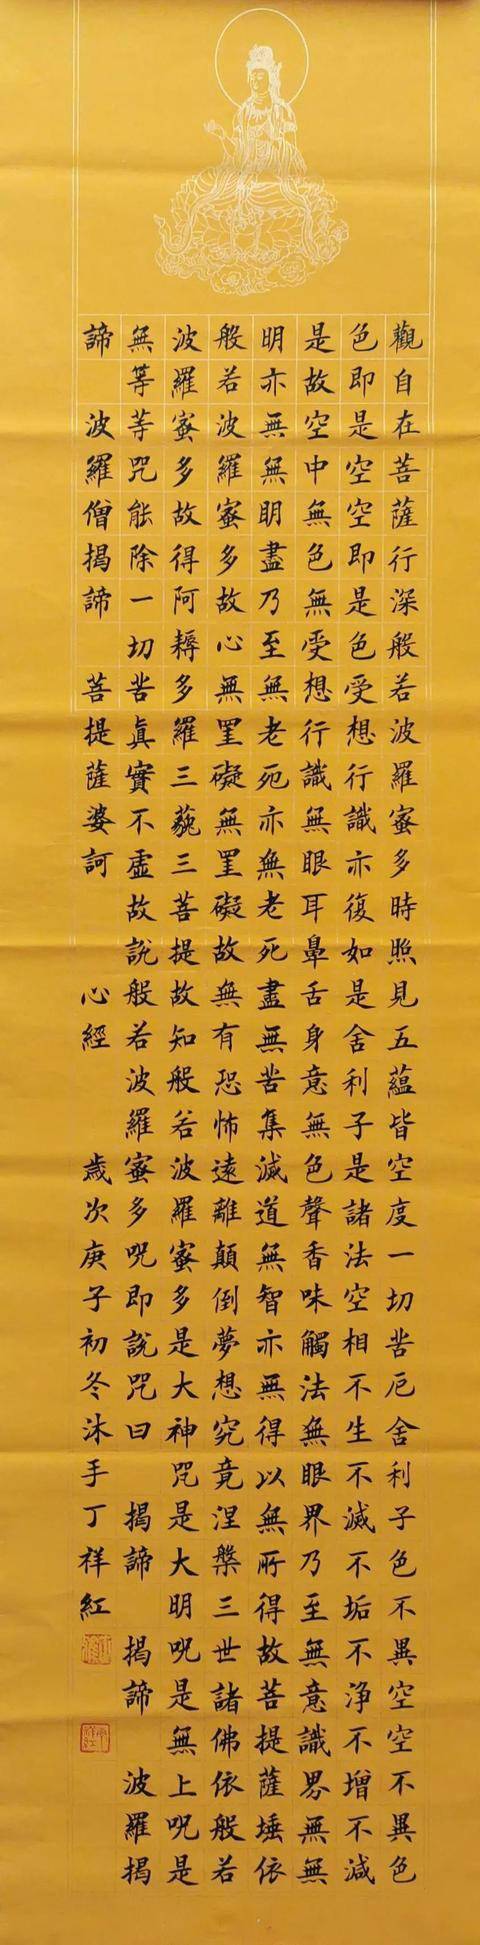 觀自在菩薩行深般若波羅蜜多時照見五蘊皆空度一切苦厄舍利子色不異空空不異色
色即是空空即是色受想行識亦復如是舍利子是諸法空相不生不滅不垢不淨不增不減
是故空中無色無受想行識無眼耳鼻舌身意無色聲香味觸法無眼界乃至無意識界無無
明亦無無明盡乃至無老死亦無老死盡無苦集滅道無智亦無得以無所得故菩提薩埵依
般若波羅蜜多故心無罣礙無罣礙故無有恐怖遠離顛倒夢想究竟涅槃三世諸佛依般若
波羅蜜多故得阿耨多羅三藐三菩提故知般若波羅蜜多是大神咒是大明咒是無上咒是
無等等咒能除一切苦眞實不虛故說般若波羅蜜多咒即說咒曰 揭諦 揭諦 波羅揭
諦 波羅僧揭諦 菩提薩婆訶 心經 歲次庚子初冬沐手丁祥紅